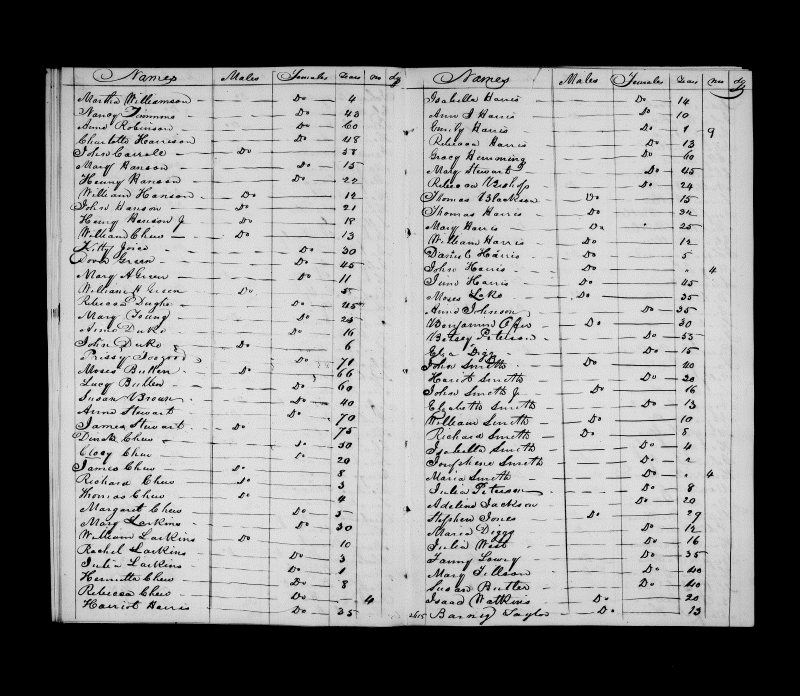 Names Males Females Years Mos dys
Martha Williamson Do 4
Nancy Timmons Do 43
Anna Robinson Do 60
Charlotte Harrison Do 48
John Carroll Do 58
Mary Hanson Do 15
Henny Hanson Do 22
William Hanson Do 12
John Hanson Do 21
Henry Henson J Do 18
William Chew Do 13
Kitty Joice Do 30
Green Do 45
Mary A Green Do 11
William H Green Do 5
Rebecca Do 45
Mary Young Do 25
Anna Duke Do 16
John Duke Do 6
Prissy Toogood Do 70
Moses Butler Do 66
Lucy Butler Do 60
Susan Brown Do 40
Anna Stewart Do 70
James Stewart Do 75
Dinah Chew Do 50
Chew Do 20
James Chew Do 8
Richard Chew Do 3
Thomas Chew Do 4
Margaret Chew Do 5
Mary Larkins Do 30
William Larkins Do 10
Rachel Larkins Do 3
Julia Larkins Do 1
Chew Do 8
Rebecca Chew Do 4
Harriot Harris Do 35
Names Males Females Years Mos dys
Isabella Harris Do 14
Ann J Harris Do 10
Emily Harris Do 1 9
Rebecca Harris Do 13
Gracy Hemming Do 60
Mary Stewart Do 45
Rebecca Bishop Do 24
Thomas Blackson Do 15
Thomas Harris Do 34
Mary Harris Do 25
William Harris Do 12
Daniel Harris Do 5
John Harris Do " 4
June Harris Do 45
Moses Lake Do 35
Anna Johnson Do 35
Benjamin Do 30
Betsey Peterson Do 55
Eliza Diggs Do 15
John Smith Do 40
Hariot Smith Do 30
John Smith J Do 16
Elizabeth Smith Do 13
William Smith Do 10
Richard Smith Do 8
Isabella Smith Do 4
Josephene Smith Do 2
Maria Smith Do " 4
Julia Peterson Do 8
Adeline Jackson Do 20
Stephen Jones Do 29
Maria Diggs Do 12
Julia West Do 16
Fanny Lowry Do 35
Mary Tillson Do 40
Susan Butler Do 40
Isaac Watkins Do 20
Barney Taylor Do 13